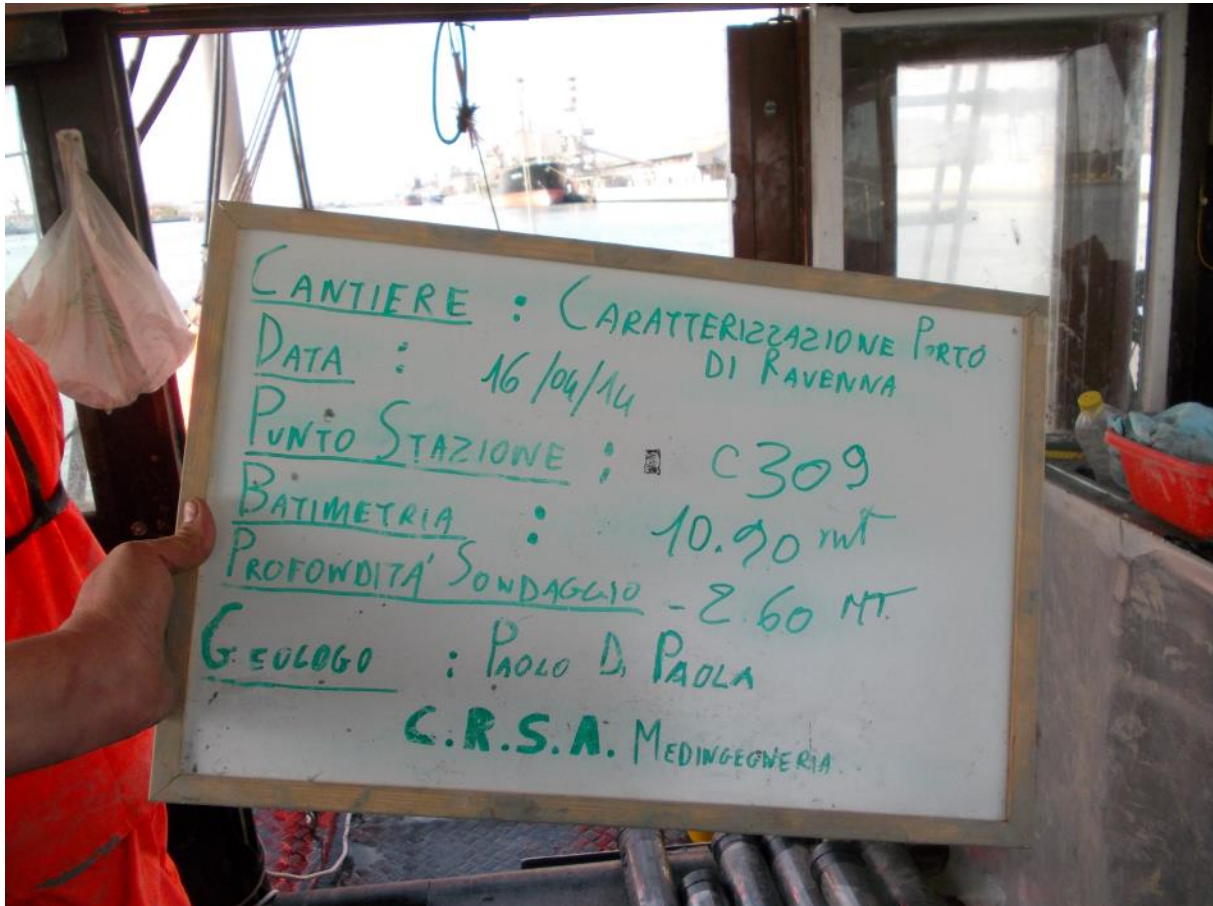 CANTIERE : CARATTERIZZAZIONE PORTO
DI RAVENNA
DATA : 16/04/14
PUNTO STAZIONE : C309
BATIMETRIA : 10.90 mt
PROFONDITA' SONDAGGIO - 2.60 MT.
GEOLOGO : PAOLO DI PAOLA
C.R.S.A. MEDINGEGNERIA